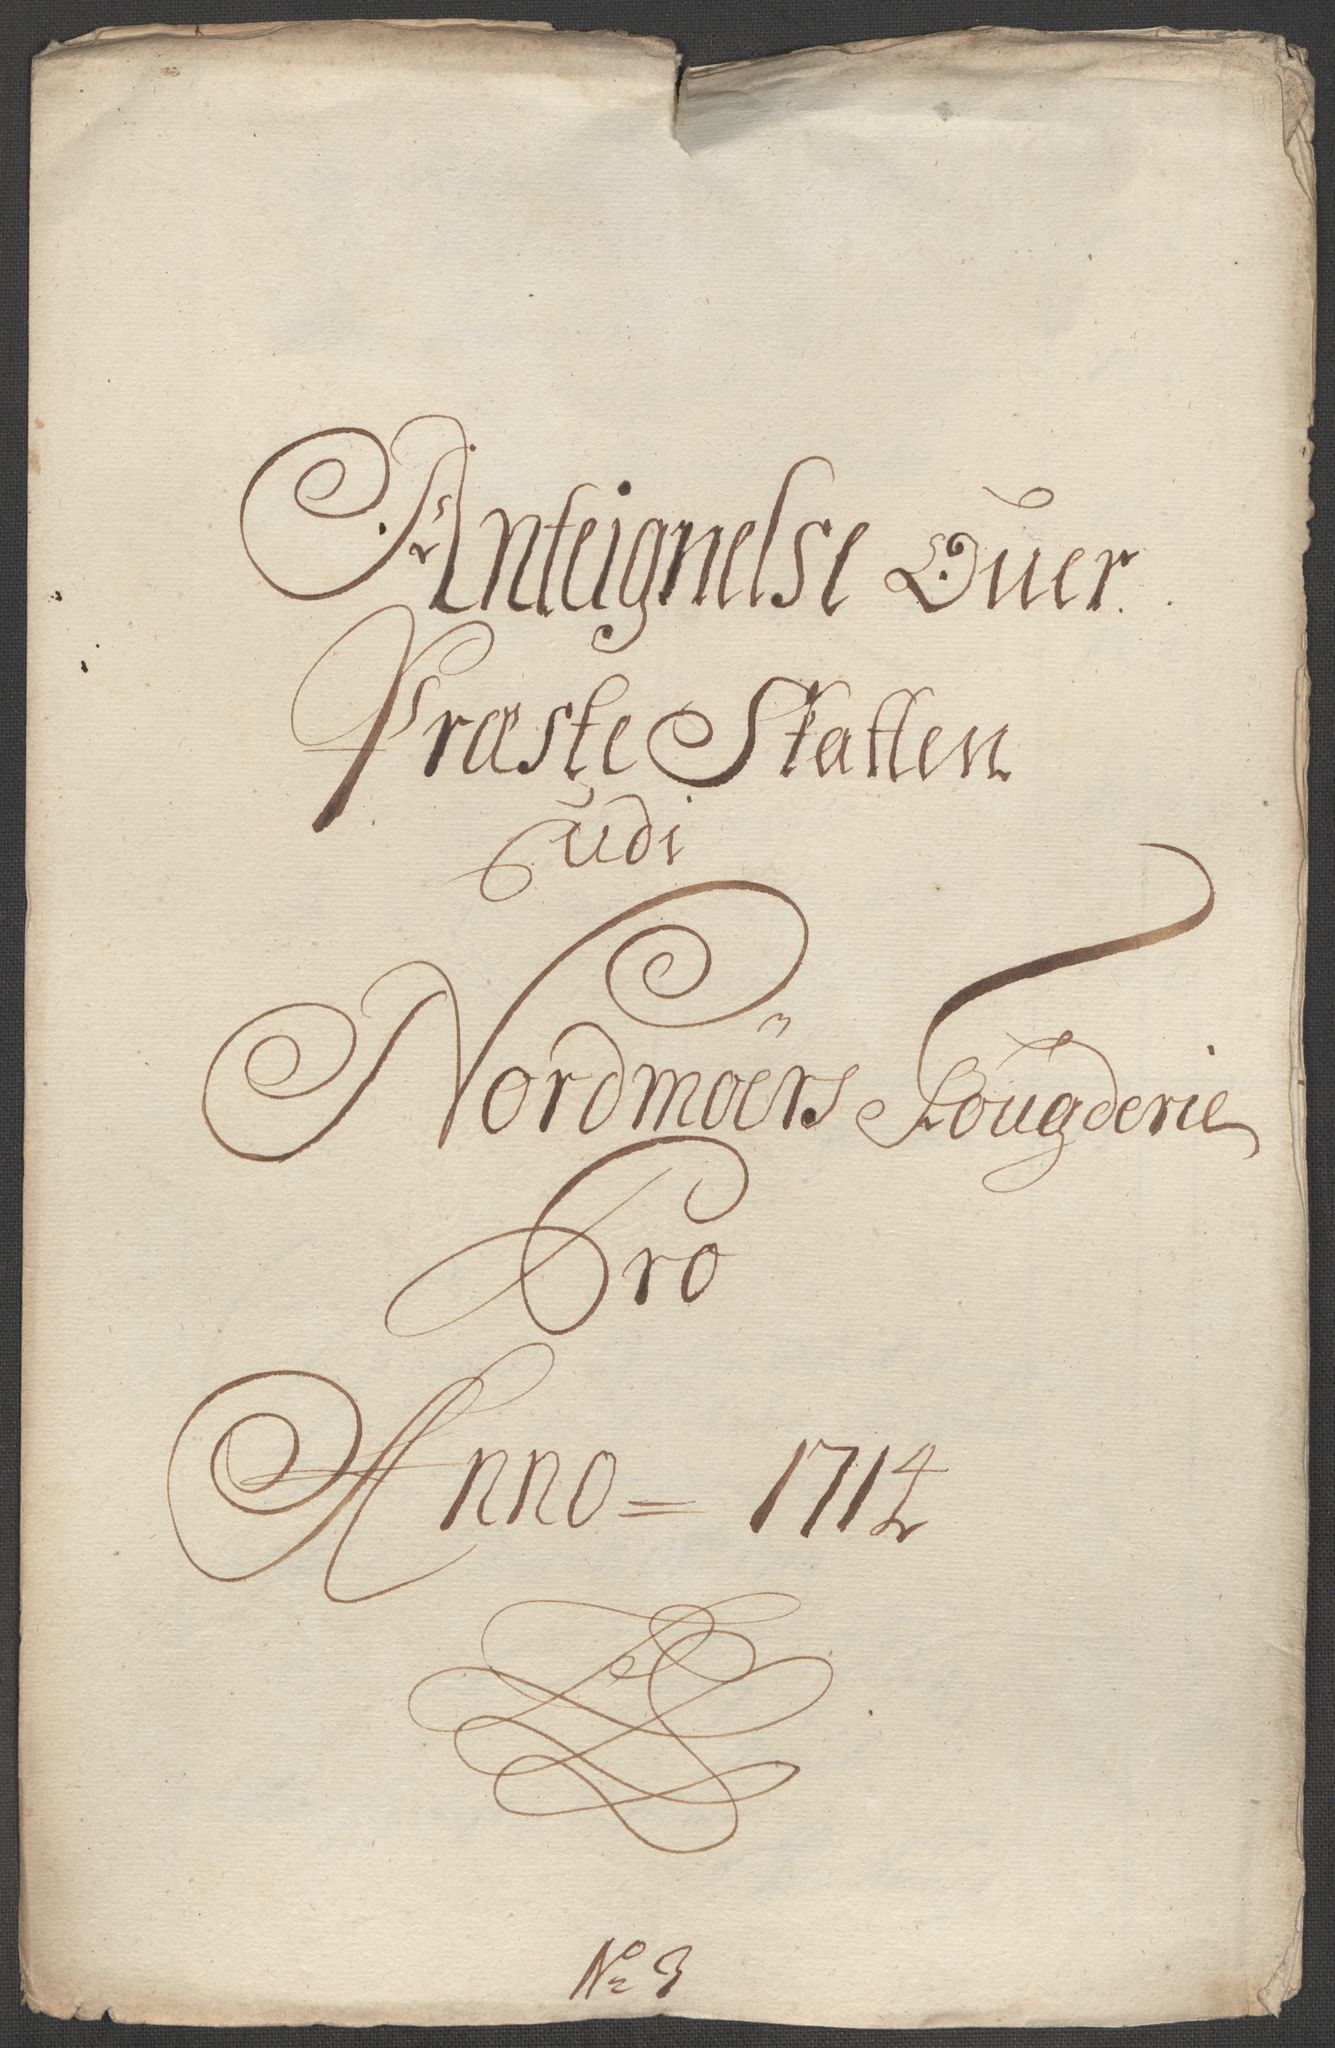 Anteignelse Ouer
Præste Skatten
udi
Nordmöers Fougderie
Pro
Anno = 1714
No 3